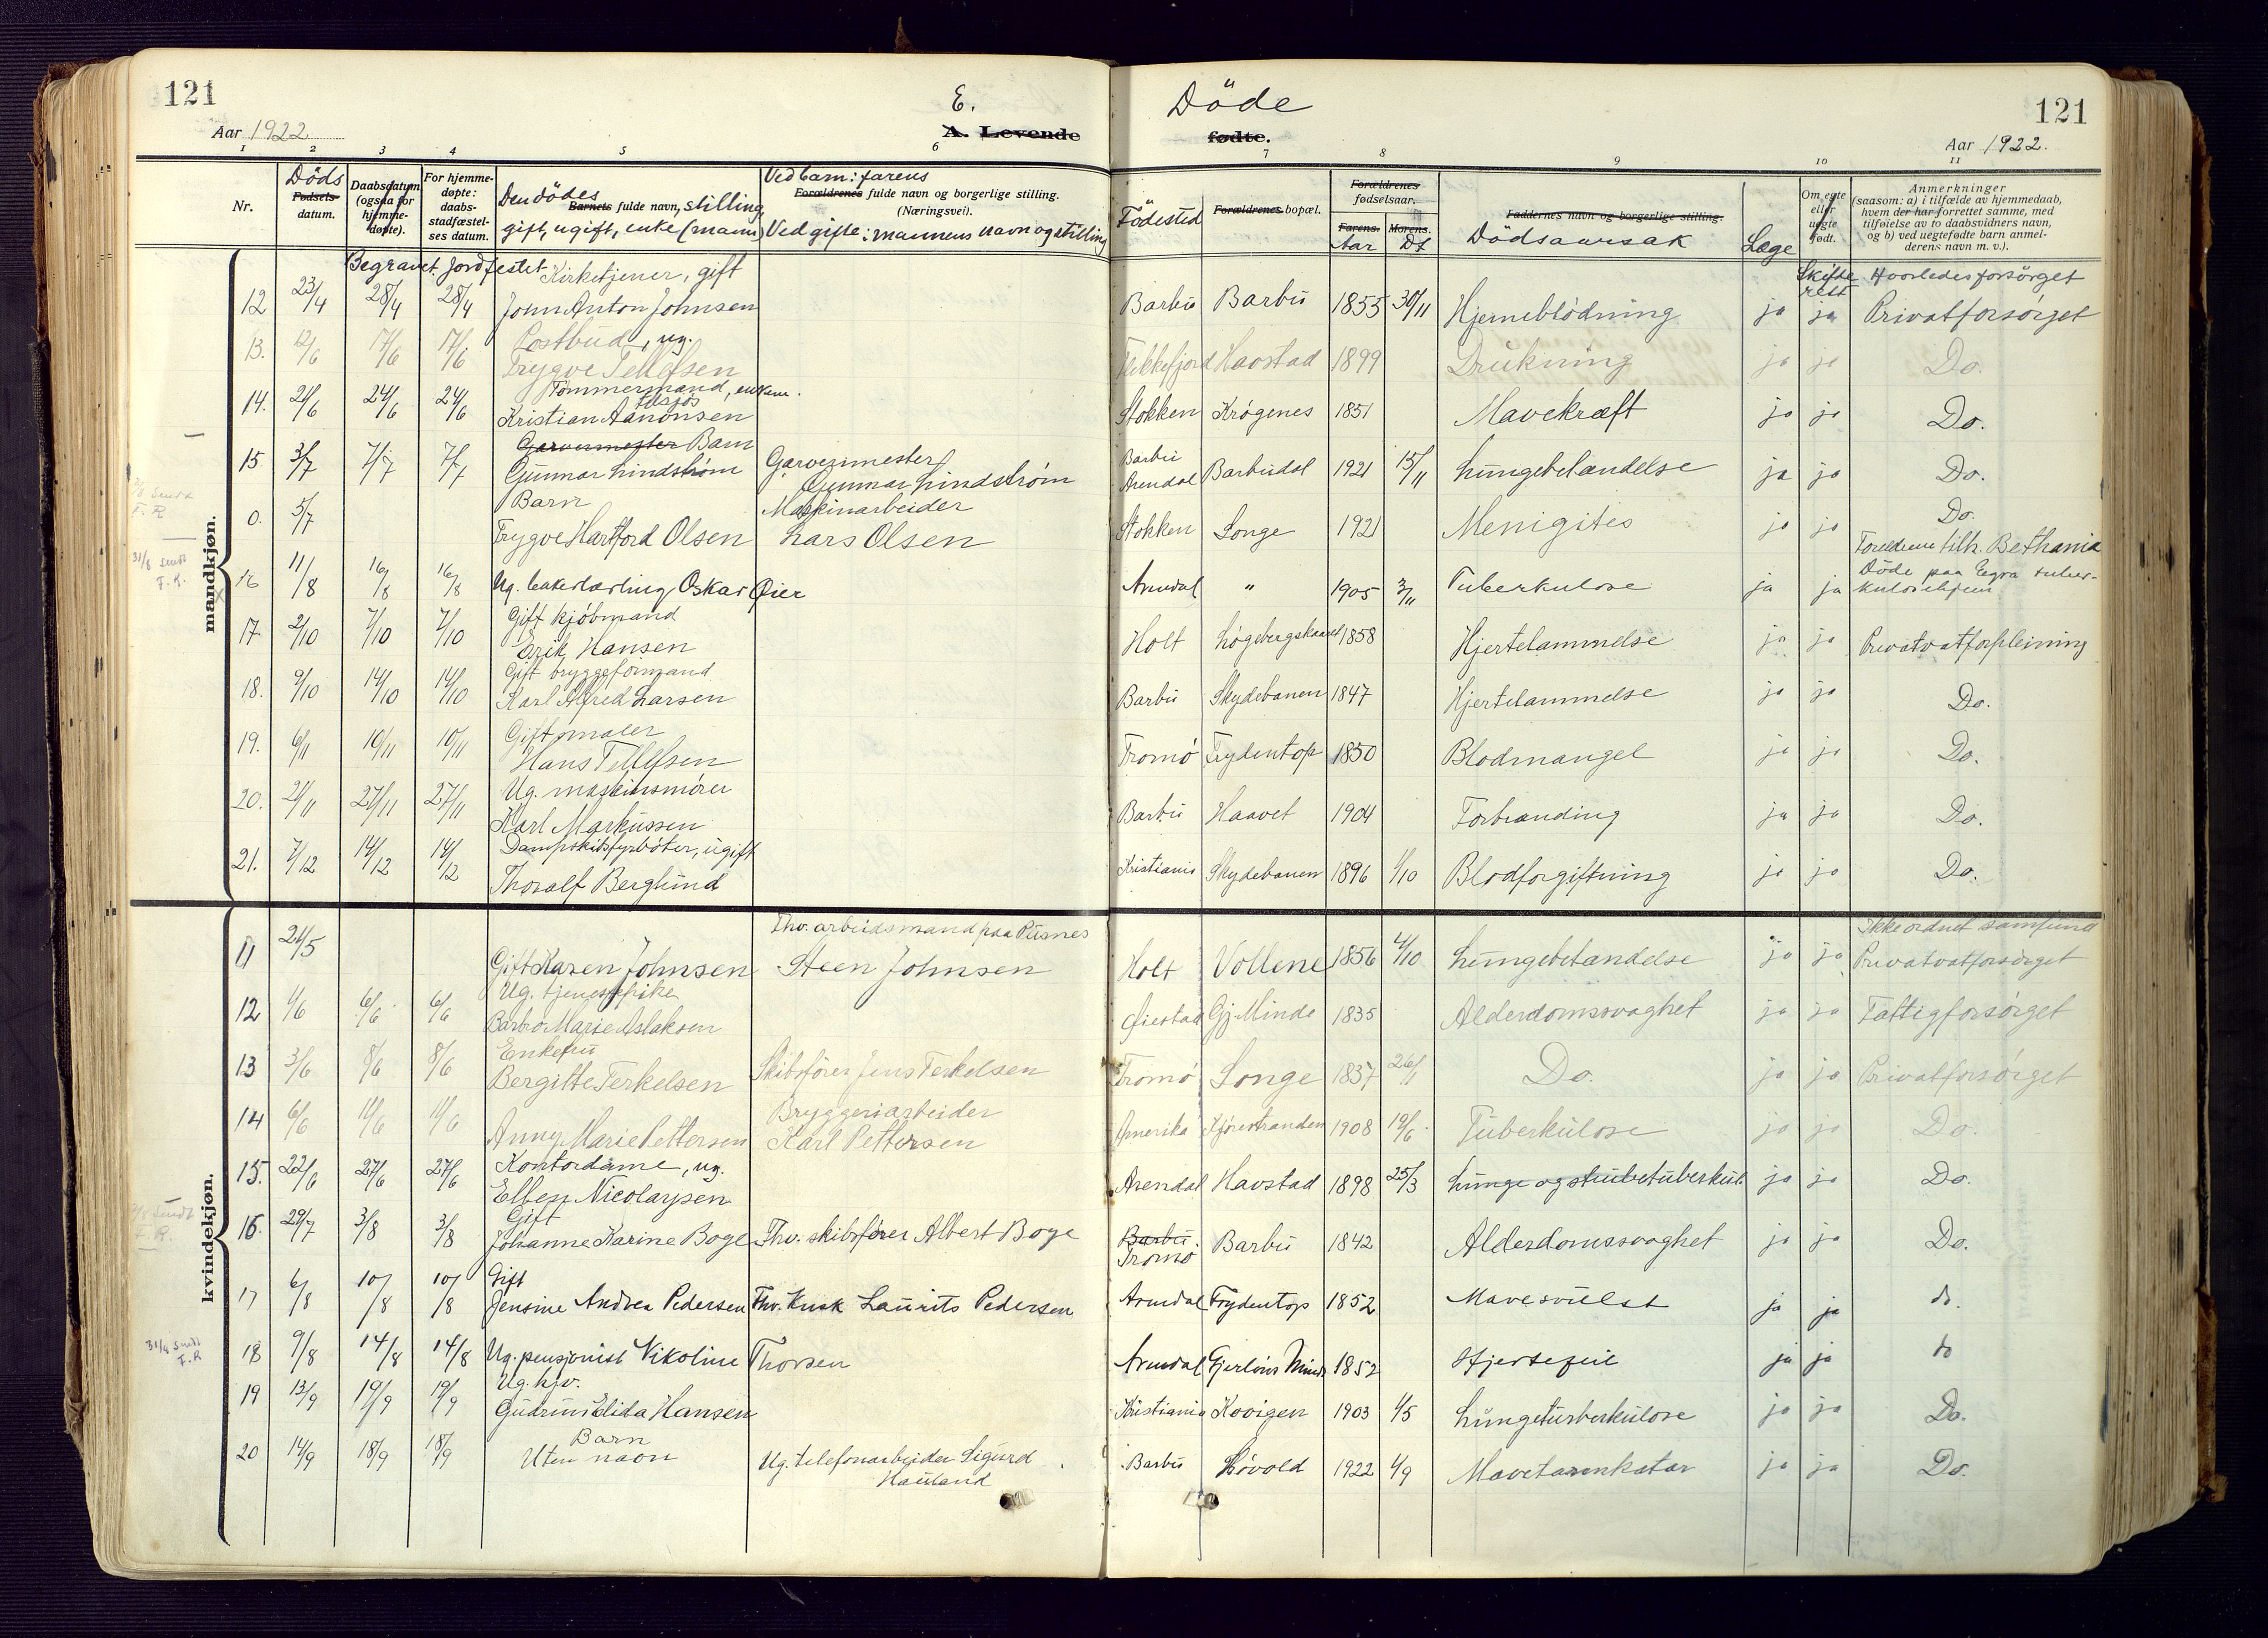 121
Aar 1922
E.
A. Levende
Døde
fødte.
121
Aar 1922.
1 2 3 4 5 6 7 8 9 10 11
Nr.
Døds
Fødsels-
datum.
Daabsdatum
(ogsaa for
hjemme-
døpte).
For hjemme-
døpte:
daabs-
stadfæstel-
ses datum.
Den dødes
Barnets fulde navn, stilling,
gift, ugift, enke (mand)
Ved barn: farens
Forældrenes fulde navn og borgerlige stilling.
(Næringsvei).
Ved gifte: mannens navn og stilling
Fødested
Forældrenes bopæl.
Forældrenes
fødselsaar.
Farens. Morens.
Aar Dt
Faddernes navn og borgerlige stilling.
Dødsaarsak
Læge
Om egte
eller
uegte
født.
Anmerkninger
(saasom: a) i tilfælde av hjemmedaab,
hvem der har forrettet samme, med
tilføielse av to daabsvidners navn,
og b) ved uegtefødte barn anmel-
derens navn m. v.).
Begravet. Jordfestet
Skifte
rett
Hvorledes forsørget
mandkjøn.
Kirketjener, gift
12 23/4 28/4 28/4 John Anton Johnsen Barbu Barbu 1855 30/11 Hjerneblødning ja ja Privatforsørget
Postbud, ug.
13. 12/6 17/6 17/6 Trygve Tellefsen Flekkefjord Havstad 1899 Drukning ja ja Do.
Tømmermand, enkem.
tilsjøs
14. 21/6 24/6 24/6 Kristian Aanonsen Stokken Krøgenes 1851 Mavekræft ja ja Do.
Garvermester Barn
15 3/7 7/7 7/7 Gunnar Lindstrøm Garvermester Gunnar Lindstrøm Barbu Arendal Barbudal 1921 15/11 Lungebetændelse ja ja Do.
Barn Maskinarbeider
0. 5/7 Trygve Hartford Olsen Lars Olsen Stokken Songe 1921 Menigitis ja ja Do.
Forældrene tilh. Bethania
16 11/8 16/8 16/8 Ug. bakerlærling Oskar Øier Arendal " 1905 3/11 Tuberkulose ja ja Døde paa Eegra tuber-
kulosehjem
Gift kjøbmand
17. 2/10 7/10 7/10 Erik Hansen Holt Løgebergskaaret 1858 Hjertelammelse ja ja Privatvatforpleining
Gift bryggeformand
18. 9/10 14/10 14/10 Karl Alfred Larsen Barbu Skydebanen 1847 Hjertelammelse ja ja Do.
Gift maler
19. 6/11 10/11 10/11 Hans Tellefsen Tromø Frydentop 1850 Blodmangel ja ja Do.
Ug. maskinsmører
20. 21/11 27/11 27/11 Karl Markussen Barbu Haavet 1904 Forbrænding ja ja Do.
Dampskibsfyrbøter, ugift
21. 7/12 14/12 14/12 Thoralf Berglund Kristiania Skydebanen 1896 1/10 Blodforgiftning ja ja Do.
kvindekjøn.
Fhv. arbeidsmand paa Pusnes Ikke ordnet samfund
11 24/5 Gift Karen Johnsen Steen Johnsen Holt Vollene 1856 4/10 Lungebetændelse ja ja Privatvatforsørget
Ug. tjenestepike
12 1/6 6/6 6/6 Barbro Marie Aslaksen Øiestad Gj. Minde 1835 Alderdomssvaghet ja ja Fattigforsørget
Enkefru
13 3/6 8/6 8/6 Bergitte Terkelsen Skibsfører Jens Terkelsen Tromø Songe 1837 26/1 Do. ja ja Privatforsørget
Bryggeriarbeider
14 6/6 11/6 11/6 Anny Marie Pettersen Karl Pettersen Amerika Kjørestranden 1908 19/6 Tuberkulose ja ja Do.
Kontordame, ug.
15. 22/6 27/6 27/6 Ellen Nicolaysen Arendal Havstad 1898 25/3 Lunge og strubetuberkul. ja ja Do.
Gift
16. 29/7 3/8 3/8 Johanne Karine Boge Fhv. skibsfører Albert Boge Barbu. Tromø Barbu 1842 Alderdomssvaghet ja ja Do.
Gift
17 6/8 10/8 10/8 Jensine Andrea Pedersen Fhv. Kusk Laurits Pedersen Arendal Frydentop 1852 Mavesvulst ja ja do.
31/8 sendt
F. R
18 9/8 14/8 14/8 Ug. pensjonist Nikoline Thorsen Arendal Gjerløws Minde 1852 Hjertefeil ja ja do
Ug. kv.
19 13/9 19/9 19/9 Gudrun Elida Hansen Kristiania Kovigen 1903 1/5 Lungeturberkulose ja ja Do.
Barn
20 14/9 18/9 18/9 Uten navn Ug. telefonarbeider Sigurd
Hauland Barbu Løvold 1922 1/9 Mavetarmkatar ja ja Do.